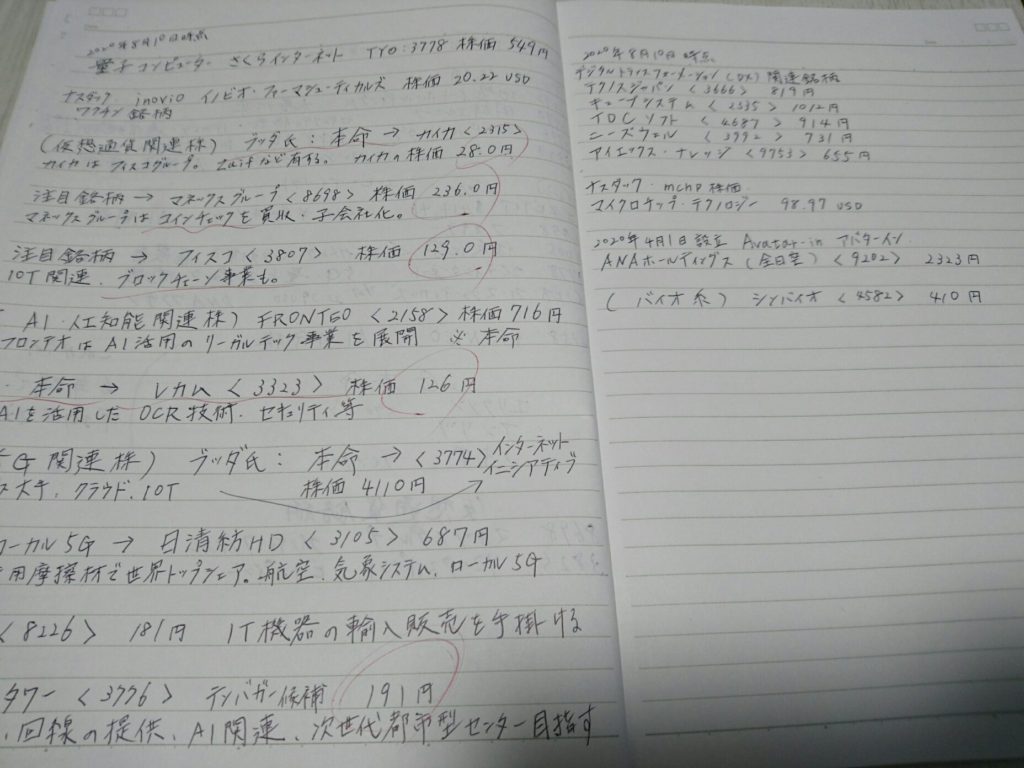 2020年8月10日時点
量子コンピューター さくらインターネット TYO:3778 株価 549円
ナスダック inovio イノビオ・ファーマシューティカルズ 株価 20.22 USD
ワクチン 銘柄
(仮想通貨関連株) ブッダ氏:本命 → カイカ <2315>
カイカはフィスコグループ。Zaifなど有する。 カイカの株価 28.0円
注目銘柄 → マネックスグループ <8698> 株価 236.0円
マネックスグループはコインチェックを買収・子会社化。
注目銘柄 → フィスコ <3807> 株価 129.0円
IOT関連、ブロックチェーン事業も。
AI・人工知能関連株) FRONTEO <2158> 株価 716円
フロンテオはAI活用のリーガルテック事業を展開 ※本命
・本命 → レカム <3323> 株価 126円
AIを活用したOCR技術・セキュリティ等
G関連株) ブッダ氏: 本命 → <3774> インターネット
イニシアティブ
大手、クラウド、IOT 株価 4110円
ローカル5G → 日清紡HD <3105> 687円
用摩擦材で世界トップシェア。航空、気象システム、ローカル5G
<8226> 181円 IT機器の輸入販売を手掛ける
タワー <3776> テンバガー候補 191円
、回線の提供、AI関連、次世代都市型センター目指す
2020年8月10日時点
デジタルトランスフォーメーション(DX)関連銘柄
テクノスジャパン <3666> 819円
キューブシステム <2335> 1012円
TDCソフト <4687> 914円
ニーズウェル <3992> 731円
アイエックス・ナレッジ <9753> 655円
ナスダック・mchp 株価
マイクロチップ・テクノロジー 98.97 USD
2020年4月1日設立 Avatar-in アバターイン
ANAホールディングス(全日空) <9202> 2323円
(バイオ系) シンバイオ <4582> 410円